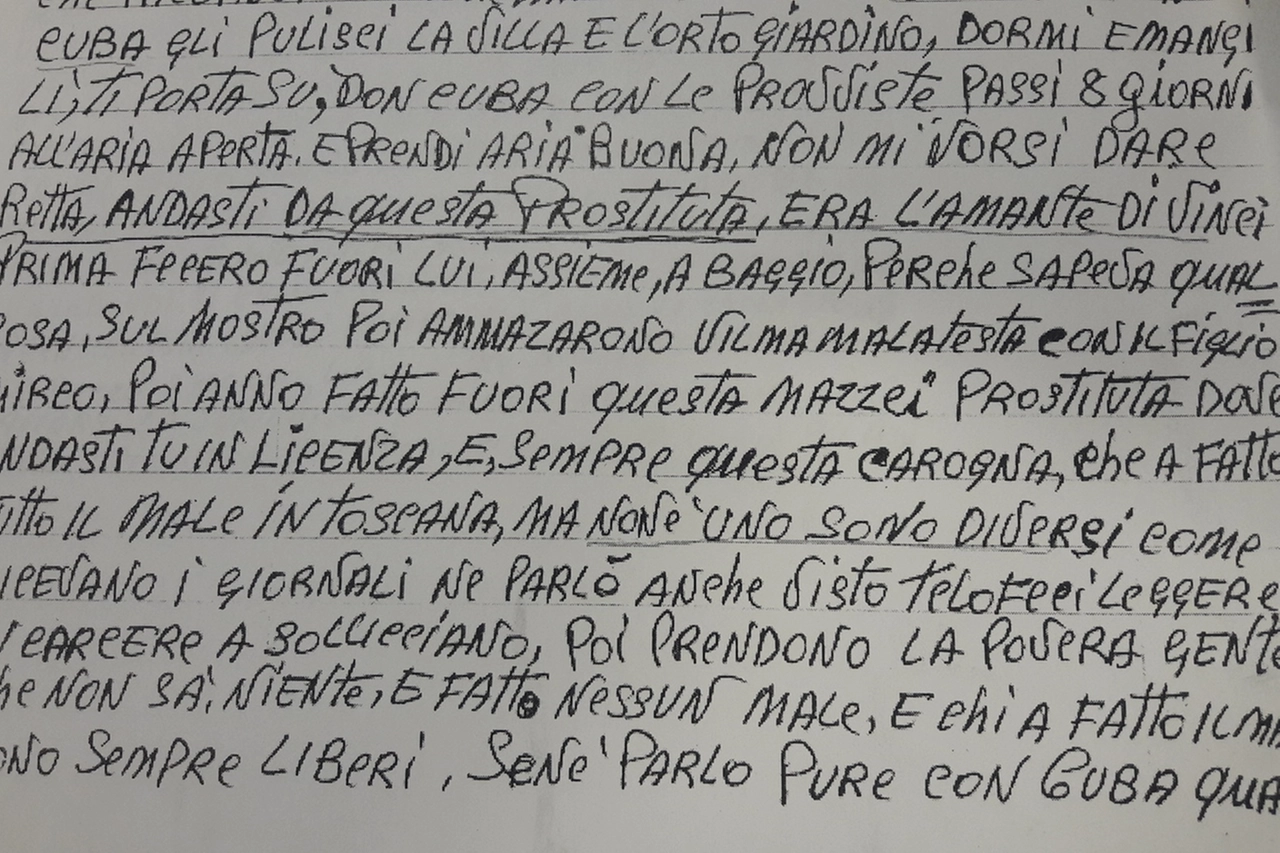 CUBA GLI PULISCI LA VILLA E L'ORTO GIARDINO, DORMI E MANGI
LI, TI PORTA SU, DON CUBA CON LE PROVVISTE PASSI 8 GIORNI
ALL'ARIA APERTA. E PRENDI ARIA BUONA, NON MI VORSI DARE
RETTA, ANDASTI DA questa PROSTITUTA, ERA L'AMANTE DI VINCI
PRIMA FECERO FUORI LUI, ASSIEME, A BAGGIO, PERCHE SAPEVA QUAL
COSA, SUL MOSTRO POI AMMAZARONO VILMA MALATESTA CON IL FIGLIO
MIRCO, POI ANNO FATTO FUORI questa MAZZEI PROSTITUTA DOVE
ANDASTI TU IN LICENZA, E, SEMPRE questa CAROGNA, che A FATTO
TUTTO IL MALE IN TOSCANA, MA NON È UNO SONO DIVERSI COME
DICEVANO I GIORNALI NE PARLÒ ANche VISTO TE LO FECI LEGGERE
CARCERE A SOLLICCIANO, POI PRENDONO LA POVERA GENTE
che NON SA, NIENTE, E FATTO NESSUN MALE, E chi A FATTO IL
SONO SEMPRE LIBERI, SENE' PARLO PURE CON CUBA QUA